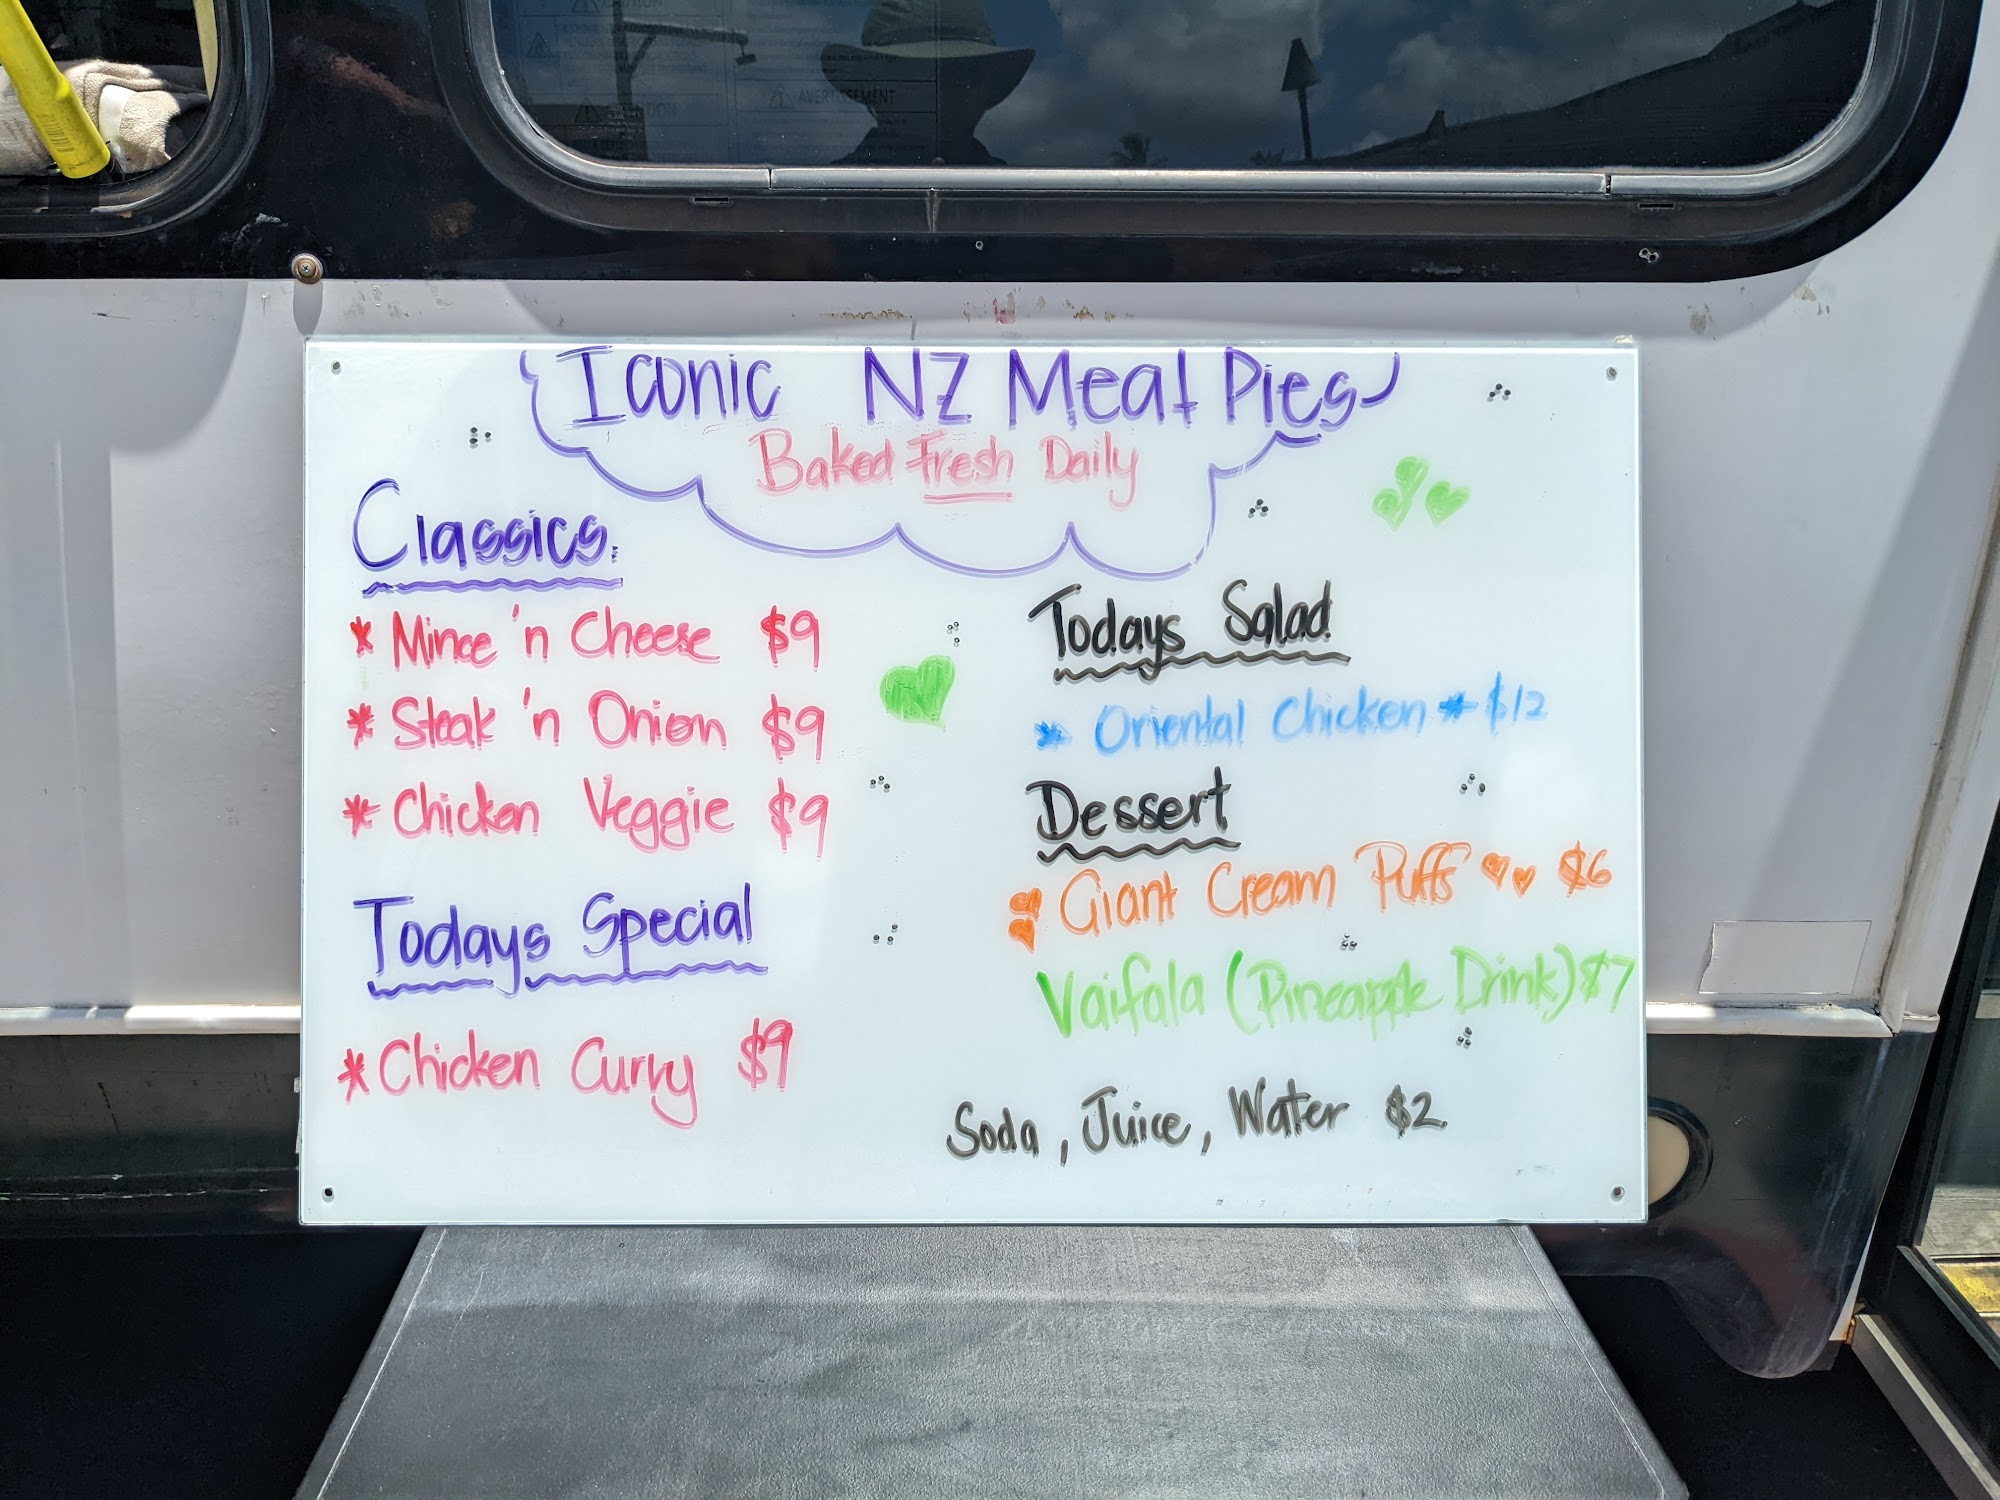 Iconic NZ Meat Pies
Baked Fresh Daily
Classics.
* Mince 'n Cheese $9
* Steak 'n Onion $9
* Chicken Veggie $9
Todays Special
* Chicken Curry $9
Todays Salad
* Oriental Chicken * $12
Dessert
Giant Cream Puffs $6
Vaifala (Pineapple Drink) $7
Soda, Juice, Water $2
AVERTISSEMENT